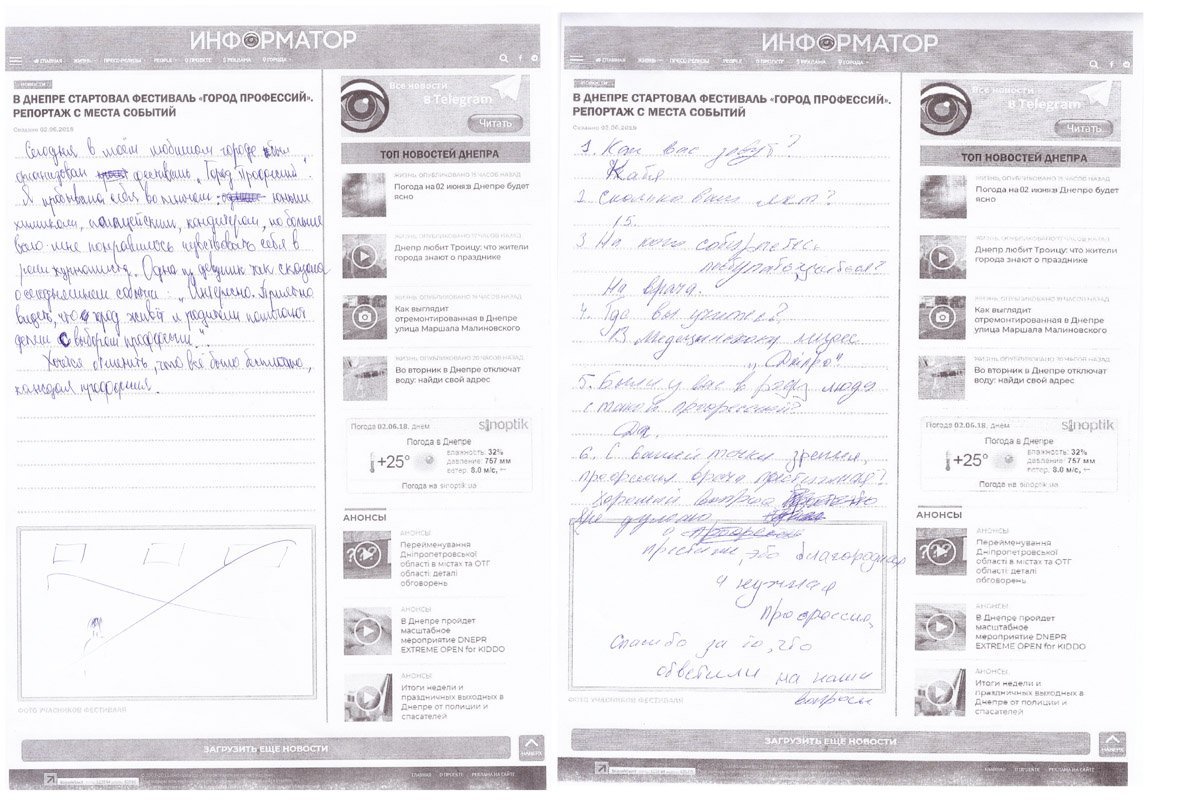 ИНФОРМАТОР
ГЛАВНАЯ ЖИЗНЬ ПРЕСС-РЕЛИЗЫ PEOPLE О ПРОЕКТЕ РЕКЛАМА ГОРОДА
НОВОСТИ
В ДНЕПРЕ СТАРТОВАЛ ФЕСТИВАЛЬ «ГОРОД ПРОФЕССИЙ».
РЕПОРТАЖ С МЕСТА СОБЫТИЙ
Сегодня в моём любимом городе был
организован фестиваль „Город Профессий".
Я пробывала себя во многом: юным
химиком, полицейским, кондитером, но больше
всего мне понравилось чувствовать себя в
роли журналиста. Одна из девушек так сказала
о сегодняшнем событии: „Интересно. Приятно
видеть, что город живёт и родители помогают
детям с выбором профессии".
Хочется отметить, что всё было бесплатно,
каждая профессия.
ФОТО УЧАСНИКОВ ФЕСТИВАЛЯ
Все новости
в Telegram
Читать
ТОП НОВОСТЕЙ ДНЕПРА
Погода на 02 июня:в Днепре будет
ясно
Днепр любит Троицу: что жители
города знают о празднике
Как выглядит
отремонтированная в Днепре
улица Маршала Малиновского
Во вторник в Днепре отключат
воду: найди свой адрес
Погода 02.06.18, днем
sinoptik
Погода в Днепре
+25°
влажность: 32%
давление: 757 мм
ветер: 8.0 м/с,
Погода на sinoptik.ua
АНОНСЫ
АНОНСЫ
Перейменування
Дніпропетровської
області в містах та ОТГ
області: деталі
обговорень
АНОНСЫ
В Днепре пройдет
масштабное
мероприятие DNEPR
EXTREME OPEN for KIDDO
АНОНСЫ
Итоги недели и
праздничных выходных в
Днепре от полиции и
спасателей
ЗАГРУЗИТЬ ЕЩЕ НОВОСТИ
НАВЕРХ
ГЛАВНАЯ О ПРОЕКТЕ РЕКЛАМА НА САЙТЕ
ИНФОРМАТОР
ГЛАВНАЯ ЖИЗНЬ ПРЕСС-РЕЛИЗЫ PEOPLE О ПРОЕКТЕ РЕКЛАМА ГОРОДА
НОВОСТИ
В ДНЕПРЕ СТАРТОВАЛ ФЕСТИВАЛЬ «ГОРОД ПРОФЕССИЙ».
РЕПОРТАЖ С МЕСТА СОБЫТИЙ
1. Как вас зовут?
Катя
2. Сколько вам лет?
15.
3. На кого собираетесь
поступать
На врача.
4. Где вы учитесь?
В Медицинском лицее
„Днипро"
5. Были у вас в роду люди
с такой профессией?
Да.
6. С вашей точки зрения,
профессия врача престижная?
Хороший вопрос
Не думаю, о
престиже, это благородная
и нужная
профессия,
Спасибо за то, что
ответили на наши
вопросы
ФОТО УЧАСНИКОВ ФЕСТИВАЛЯ
Все новости
в Telegram
Читать
ТОП НОВОСТЕЙ ДНЕПРА
Погода на 02 июня:в Днепре будет
ясно
Днепр любит Троицу: что жители
города знают о празднике
Как выглядит
отремонтированная в Днепре
улица Маршала Малиновского
Во вторник в Днепре отключат
воду: найди свой адрес
Погода 02.06.18, днем
sinoptik
Погода в Днепре
+25°
влажность: 32%
давление: 757 мм
ветер: 8.0 м/с,
Погода на sinoptik.ua
АНОНСЫ
АНОНСЫ
Перейменування
Дніпропетровської
області в містах та ОТГ
області: деталі
обговорень
АНОНСЫ
В Днепре пройдет
масштабное
мероприятие DNEPR
EXTREME OPEN for KIDDO
АНОНСЫ
Итоги недели и
праздничных выходных в
Днепре от полиции и
спасателей
ЗАГРУЗИТЬ ЕЩЕ НОВОСТИ
НАВЕРХ
ГЛАВНАЯ О ПРОЕКТЕ РЕКЛАМА НА САЙТЕ